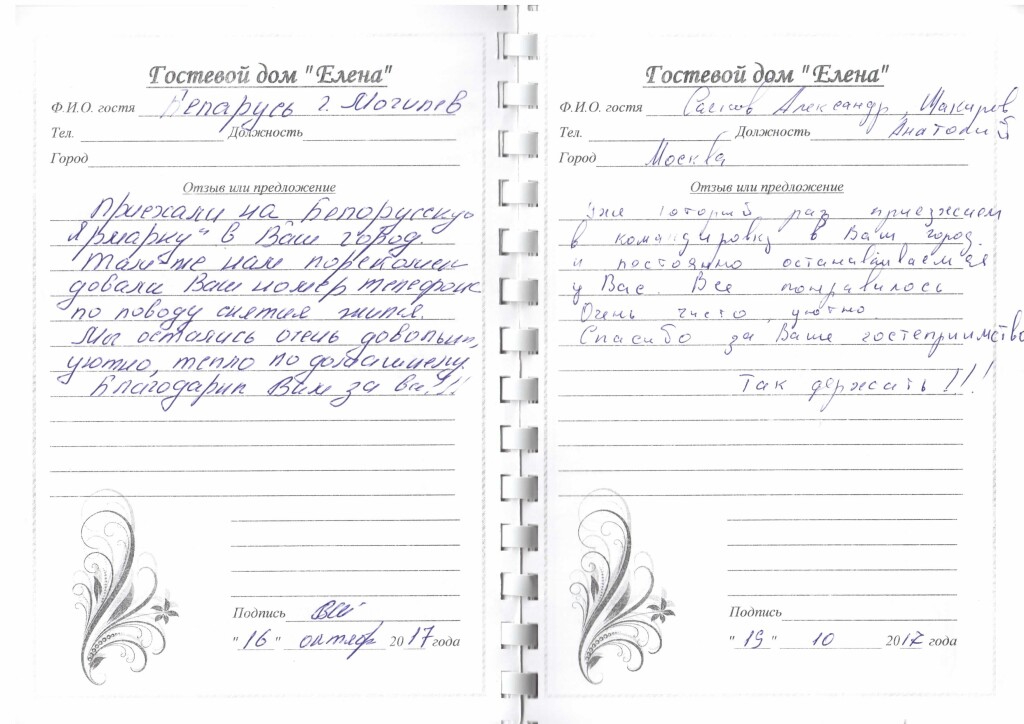 Гостевой дом "Елена"
Ф.И.О. гостя Беларусь г. Могилев
Тел. Должность
Город
Отзыв или предложение
Приехали на „Белорусскую
Ярмарку" в Ваш город.
Там же нам порекомен
довали Ваш номер телефона
по поводу снятия жилья.
Мы остались очень довольны,
уютно, тепло по домашнему.
Благодарим Вам за все!!!
Подпись
"16" октябр 2017 года
Гостевой дом "Елена"
Ф.И.О. гостя Александр, Шакиров
Тел. Должность Анатолий
Город Москва
Отзыв или предложение
Уже который раз приезжаем
в командировку в Ваш город.
и постоянно останавливаемся
у Вас. Все понравилось
Очень чисто, уютно.
Спасибо за Ваше гостеприимство
Так держать!!!
Подпись
"19" 10 2017 года